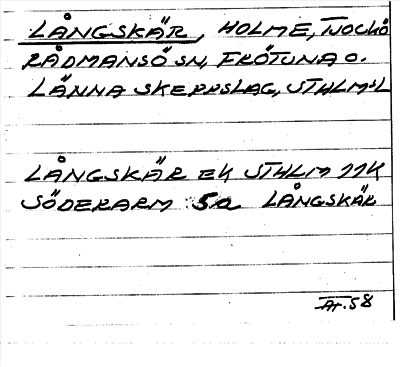 LÅNGSKÄR, HOLME, TJOCKÖ
RÅDMANSÖ SN, FRÖTUNA O.
LÄNNA SKEPPSLAG, STHLMS L
LÅNGSKÄR EK STHLM 11K
SÖDERARM 5a LÅNGSKÄR
Ar. 58